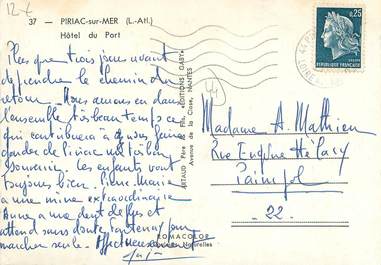 12x
37 — PIRIAC-sur-MER (L.-Atl.)
Hôtel du Port
0,25
REPUBLIQUE FRANÇAISE
44
Plus que trois jours avant
de prendre le chemin du
retour. Nous avons eu dans
l'ensemble très beau temps ce
qui contribuera à nous faire
garder de Piriac un très bon
souvenir. Les enfants vont
toujours bien. Pierre Marie
a une mine extraordinaire
Anne a une dent de plus et
attend sans doute
marcher seule. Affectueusement
ARTAUD Père & Fils, "EDITIONS GABY"
Avenue de la Close, NANTES
ROMACOLOR
Couleurs Naturelles
Madame A. Mathieu
Rue Eugène Hélary
Paimpol
22